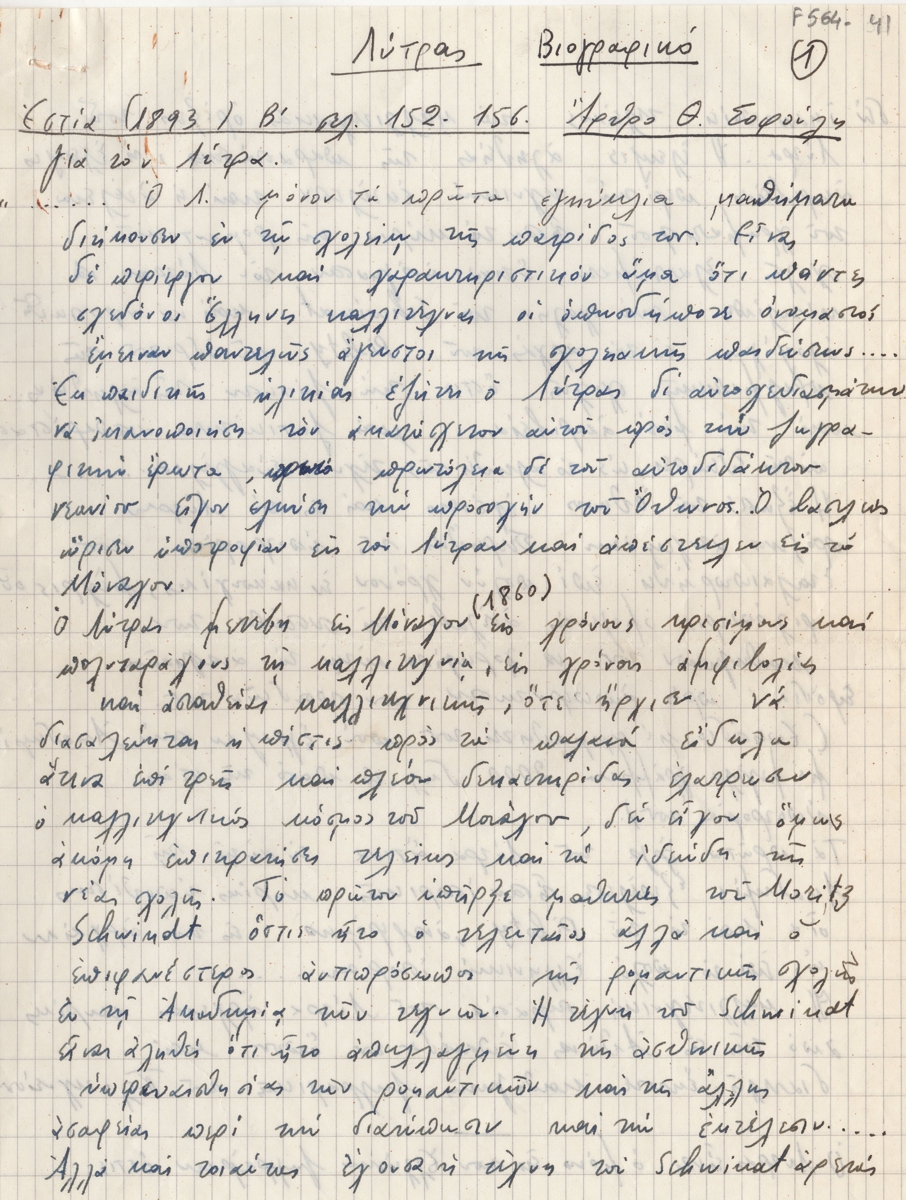 F564- 41
Λύτρας Βιογραφικό
1
Ἑστία (1893) Β' σελ. 152-156. Ἄρθρο Θ. Σοφούλη
γιὰ τὸν Λύτρα.
"....... Ὁ Λ. μόνον τὰ πρῶτα ἐγκύκλια μαθήματα
διήκουσεν ἐν τῇ σχολείῳ τῆς πατρίδος του. Εἶναι
δὲ περίεργον καὶ χαρακτηριστικὸν ἅμα ὅτι πάντες
σχεδὸν οἱ Ἕλληνες καλλιτέχναι οἱ ὁπωσδήποτε ὀνομαστοί
ἔμειναν παντελῶς ἄγευστοι τῆς σχολειακῆς παιδεύσεως....
Ἐκ παιδικῆς ἡλικίας ἐζήτει ὁ Λύτρας δι' αὐτοσχεδιασμάτων
νὰ ἱκανοποιήσῃ τὸν ἀκατάσχετον αὐτοῦ πρὸς τὴν ζωγρα-
φικὴν ἔρωτα, πρωτόλεια δὲ τοῦ αὐτοδιδάκτου
νεανίου εἶχον ἑλκύσῃ τὴν προσοχὴν τοῦ Ὄθωνος. Ὁ βασιλεὺς
ὥρισεν ὑποτροφίαν εἰς τὸν Λύτραν καὶ ἀπέστειλεν εἰς τὸ
Μόναχον.
Ὁ Λύτρας μετέβη εἰς Μόναχον (1860) εἰς χρόνους κρισίμους καὶ
πολυταράχους τῇ καλλιτεχνίᾳ, εἰς χρόνους ἀμφιβολίας
καὶ ἀσταθείας καλλιτεχνικῆς, ὅτε ἤρχισεν νὰ
διασαλεύηται ἡ πίστις πρὸς τὰ παλαιὰ εἴδωλα
ἅτινα ἐπὶ τρεῖς καὶ πλέον δεκαετηρίδας ἐλάτρευσεν
ὁ καλλιτεχνικὸς κόσμος τοῦ Μονάχου, δὲν εἶχον ὅμως
ἀκόμη ἐπικρατήσει τελείως καὶ τὰ ἰδεώδη τῆς
νέας σχολῆς. Τὸ πρῶτον ὑπῆρξε μαθητὴς τοῦ Moritz
Schwindt ὅστις ἦτο ὁ τελευταῖος ἀλλὰ καὶ ὁ
ἐπιφανέστερος ἀντιπρόσωπος τῆς ρομαντικῆς σχολῆς
ἐν τῇ Ἀκαδημίᾳ τῶν τεχνῶν. Ἡ τέχνη τοῦ Schwindt
εἶναι ἀληθὲς ὅτι ἦτο ἀπηλλαγμένη τῆς ἀσθενικῆς
ὑπερευαισθησίας τῶν ρομαντικῶν καὶ τῆς ἄλλης
ἀσαφείας περὶ τὴν διατύπωσιν καὶ τὴν ἐκτέλεσιν.....
Ἀλλὰ καὶ τοιαύτας ἔχουσα ἡ τέχνη τοῦ Schwindt ἀρετὰς